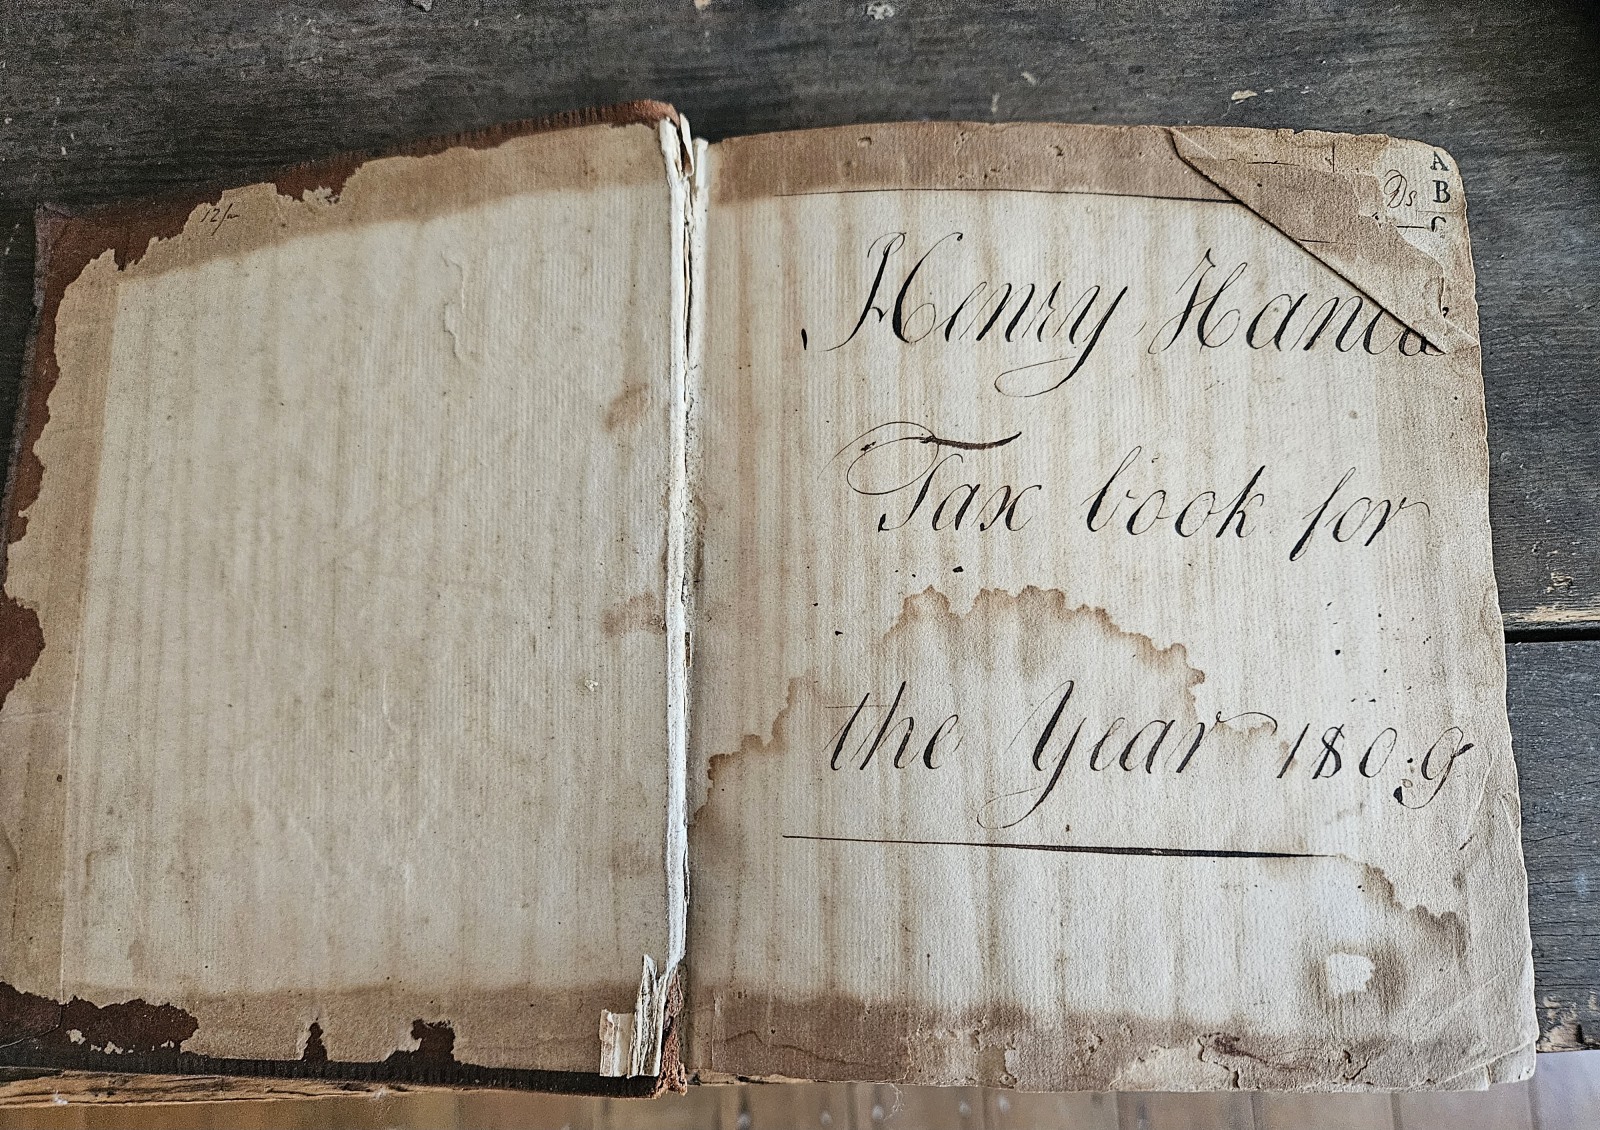 12/
A
Ds B
C
Henry Hanc
Tax book for
the Year 1809